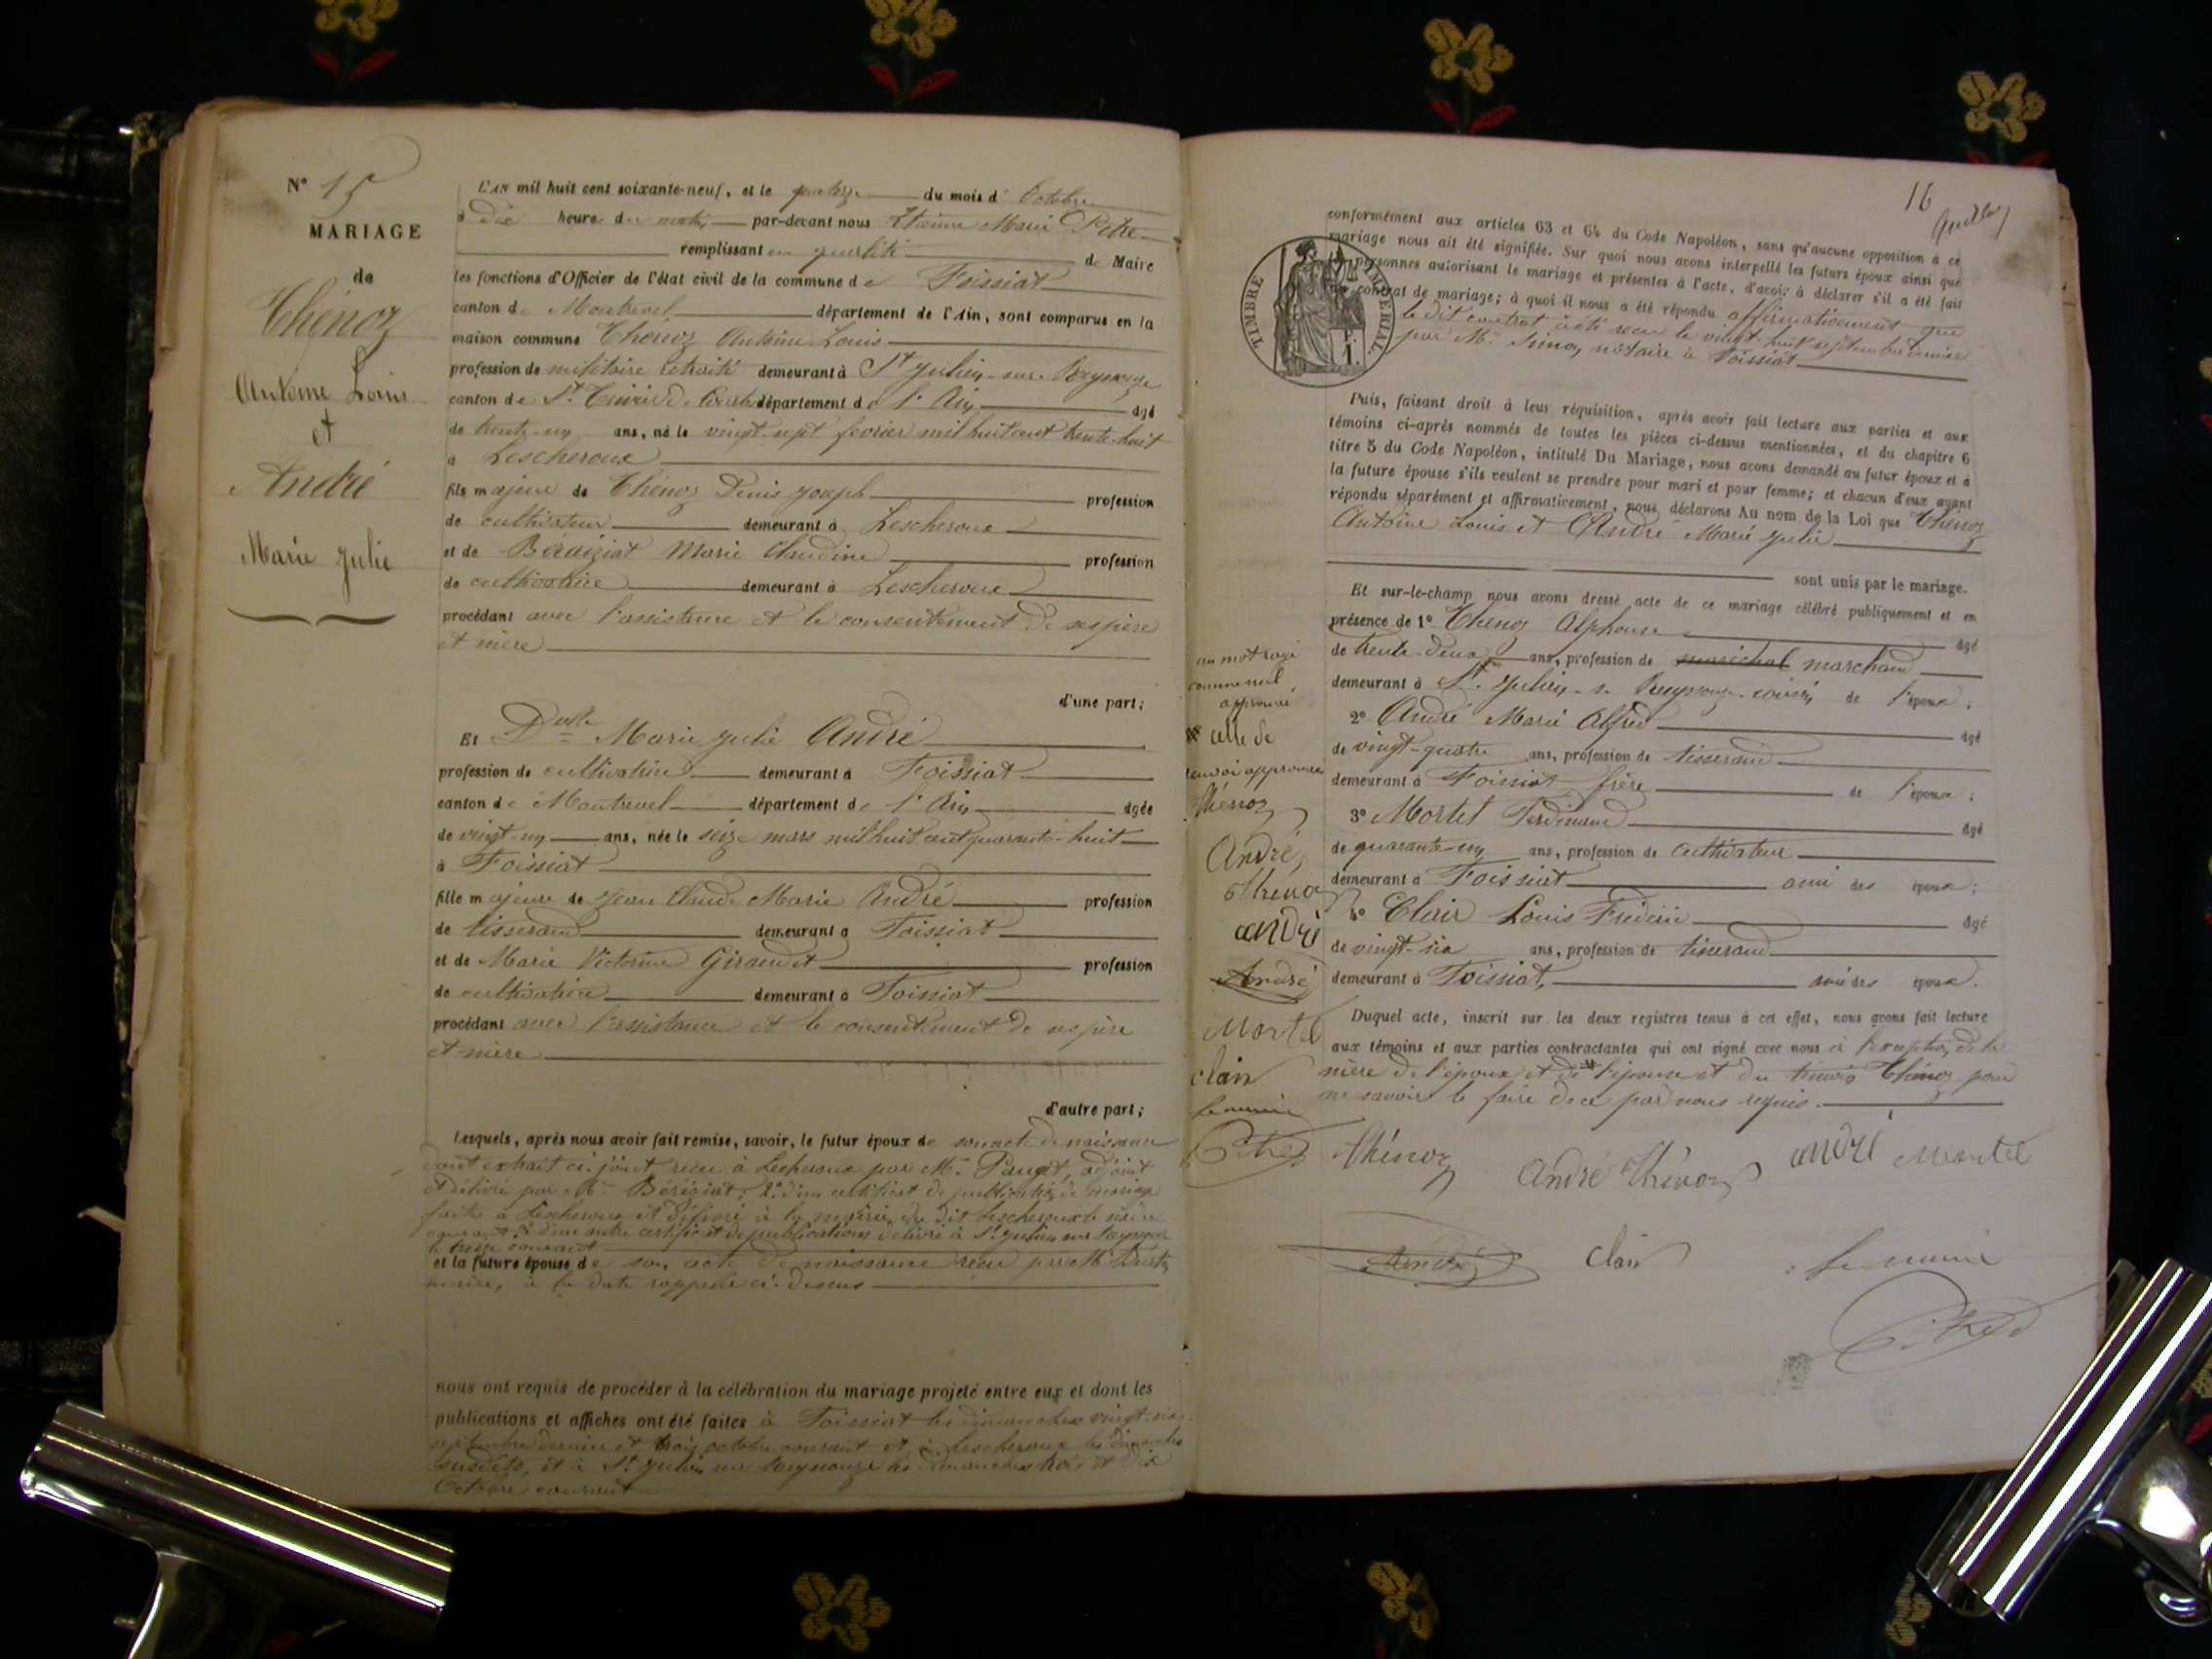 N° 15
MARIAGE
de
Thénoz
Antoine Louis
et
André
Marie Julie
L'AN mil huit cent soixante-neuf, et le quatorze du mois d' Octobre
à dix heure du matin par-devant nous Etienne Marie Pitre
remplissant en qualité de Maire
les fonctions d'Officier de l'état civil de la commune de Foissiat
canton de Montrevel département de l'Ain, sont comparus en la
maison commune Thenoz Antoine Louis
profession de militaire retraité demeurant à St Julien-sur-Reyssouze
canton de St. Trivier de Courtes département de l'Ain âgé
de trente-un ans, né le vingt-sept fevrier mil huit cent trente-huit
à Lescheroux
fils majeur de Thénoz Denis Joseph profession
de cultivateur demeurant à Lescheroux
et de Béréziat Marie Claudine profession
de cultivatrice demeurant à Lescheroux
procédant avec l'assistance et le consentement de ses père
et mère
d'une part;
Et Delle Marie Julie André
profession de cultivatrice demeurant à Foissiat
canton de Montrevel département de l'Ain âgée
de vingt-un ans, née le seize mars mil huit cent quarante-huit
à Foissiat
fille majeure de Jean Claude Marie André profession
de tisserand demeurant à Foissiat
et de Marie Victorine Giraudet profession
de cultivatrice demeurant à Foissiat
procédant avec l'assistance et le consentement de ses père
et mère
d'autre part;
Lesquels, après nous avoir fait remise, savoir, le futur époux de son acte de naissance
dont extrait ci-joint reçu à Lescheroux par Mr. Pauget, adjoint
et délivré par Mr. Béréziat; 2° d'un certificat de publication de mariage
faite à Lescheroux et délivré à la mairie du dit Lescheroux le
courant 3° d'un autre certificat de publications délivré à St. Julien sur Reyssouze
le treize courant
et la future épouse de son acte de naissance reçu par Mr
maire, à la date rappelée ci-dessus
nous ont requis de procéder à la célébration du mariage projeté entre eux et dont les
publications et affiches ont été faites à Foissiat les dimanches vingt-six
septembre dernier et trois octobre courant et à Lescheroux les dimanches
susdits, et à St. Julien sur Reyssouze les dimanches trois et dix
Octobre courant
16
conformément aux articles 63 et 64 du Code Napoléon, sans qu'aucune opposition à ce
mariage nous ait été signifiée. Sur quoi nous avons interpellé les futurs époux ainsi que
personnes autorisant le mariage et présentes à l'acte, d'avoir à déclarer s'il a été fait
contrat de mariage; à quoi il nous a été répondu affirmativement que
le dit contrat a été reçu le vingt-huit septembre dernier
par Mr. notaire à Foissiat
TIMBRE IMPÉRIAL
1
Puis, faisant droit à leur réquisition, après avoir fait lecture aux parties et aux
témoins ci-après nommés de toutes les pièces ci-dessus mentionnées, et du chapitre 6
titre 5 du Code Napoléon, intitulé Du Mariage, nous avons demandé au futur époux et à
la future épouse s'ils veulent se prendre pour mari et pour femme; et chacun d'eux ayant
répondu séparément et affirmativement, nous déclarons Au nom de la Loi que Thenoz
Antoine Louis et André Marie Julie
sont unis par le mariage.
Et sur-le-champ nous avons dressé acte de ce mariage célébré publiquement et en
présence de 1° Thenoz Alphonse âgé
de trente-deux ans, profession de maréchal marchand
demeurant à St. Julien-s.-Reyssouze cousin de l'époux;
2° André Marie Alfred âgé
de vingt-quatre ans, profession de tisserand
demeurant à Foissiat frère de l'épouse;
3° Mortel Ferdinand âgé
de quarante-un ans, profession de cultivateur
demeurant à Foissiat ami des époux;
4° Clair Louis Frédéric âgé
de vingt-six ans, profession de tisserand
demeurant à Foissiat, ami des époux.
Duquel acte, inscrit sur les deux registres tenus à cet effet, nous avons fait lecture
aux témoins et aux parties contractantes qui ont signé avec nous à l'exception de la
mère de l'époux et de l'épouse et du témoin Thénoz pour
ne savoir le faire de ce par nous requis.
un mot rayé
comme nul
approuvé
celle de
renvoi approuvé
Thénoz
André
Thenoz
andré
André
Mortel
clair
le maire
Pitre
Thénoz
André Thénoz
andré
Mortel
André
Clair
le maire
Pitre